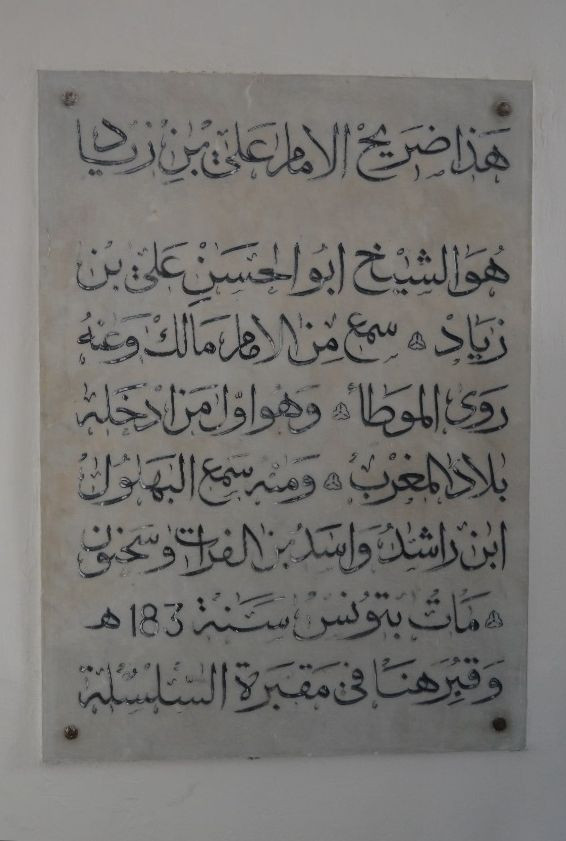 هَذا ضَرِيحْ الامام عَلي بْنِ زِيَاد
هُوَ الشيْخ ابُو الحَسَنْ عَلي بْن
زيَادْ سمع مِن الامام مَالكْ وَعنهُ
رَوَى الموَطأ وَهوَ اوّل مَن ادْخَلهُ
بلادَ المغْربْ وَمنه سَمع البَهْلول
ابن راشدْ وَاسَدْ بْن الفرات وَسَحنون
مَاتْ بتونسْ سَنة 183 هـ
وَقبِرَ هنَا في مَقبَرة السّلسلة